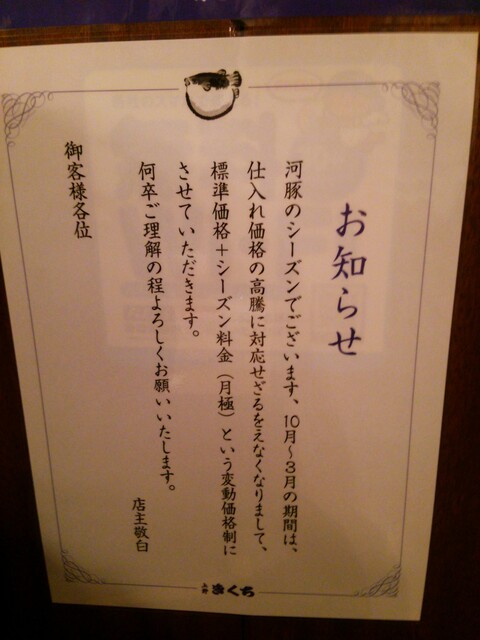 お知らせ
河豚のシーズンでございます、10月〜3月の期間は、
仕入れ価格の高騰に対応せざるをえなくなりまして、
標準価格＋シーズン料金（月極）という変動価格制に
させていただきます。
何卒ご理解の程よろしくお願いいたします。
店主敬白
御客様各位
きくち